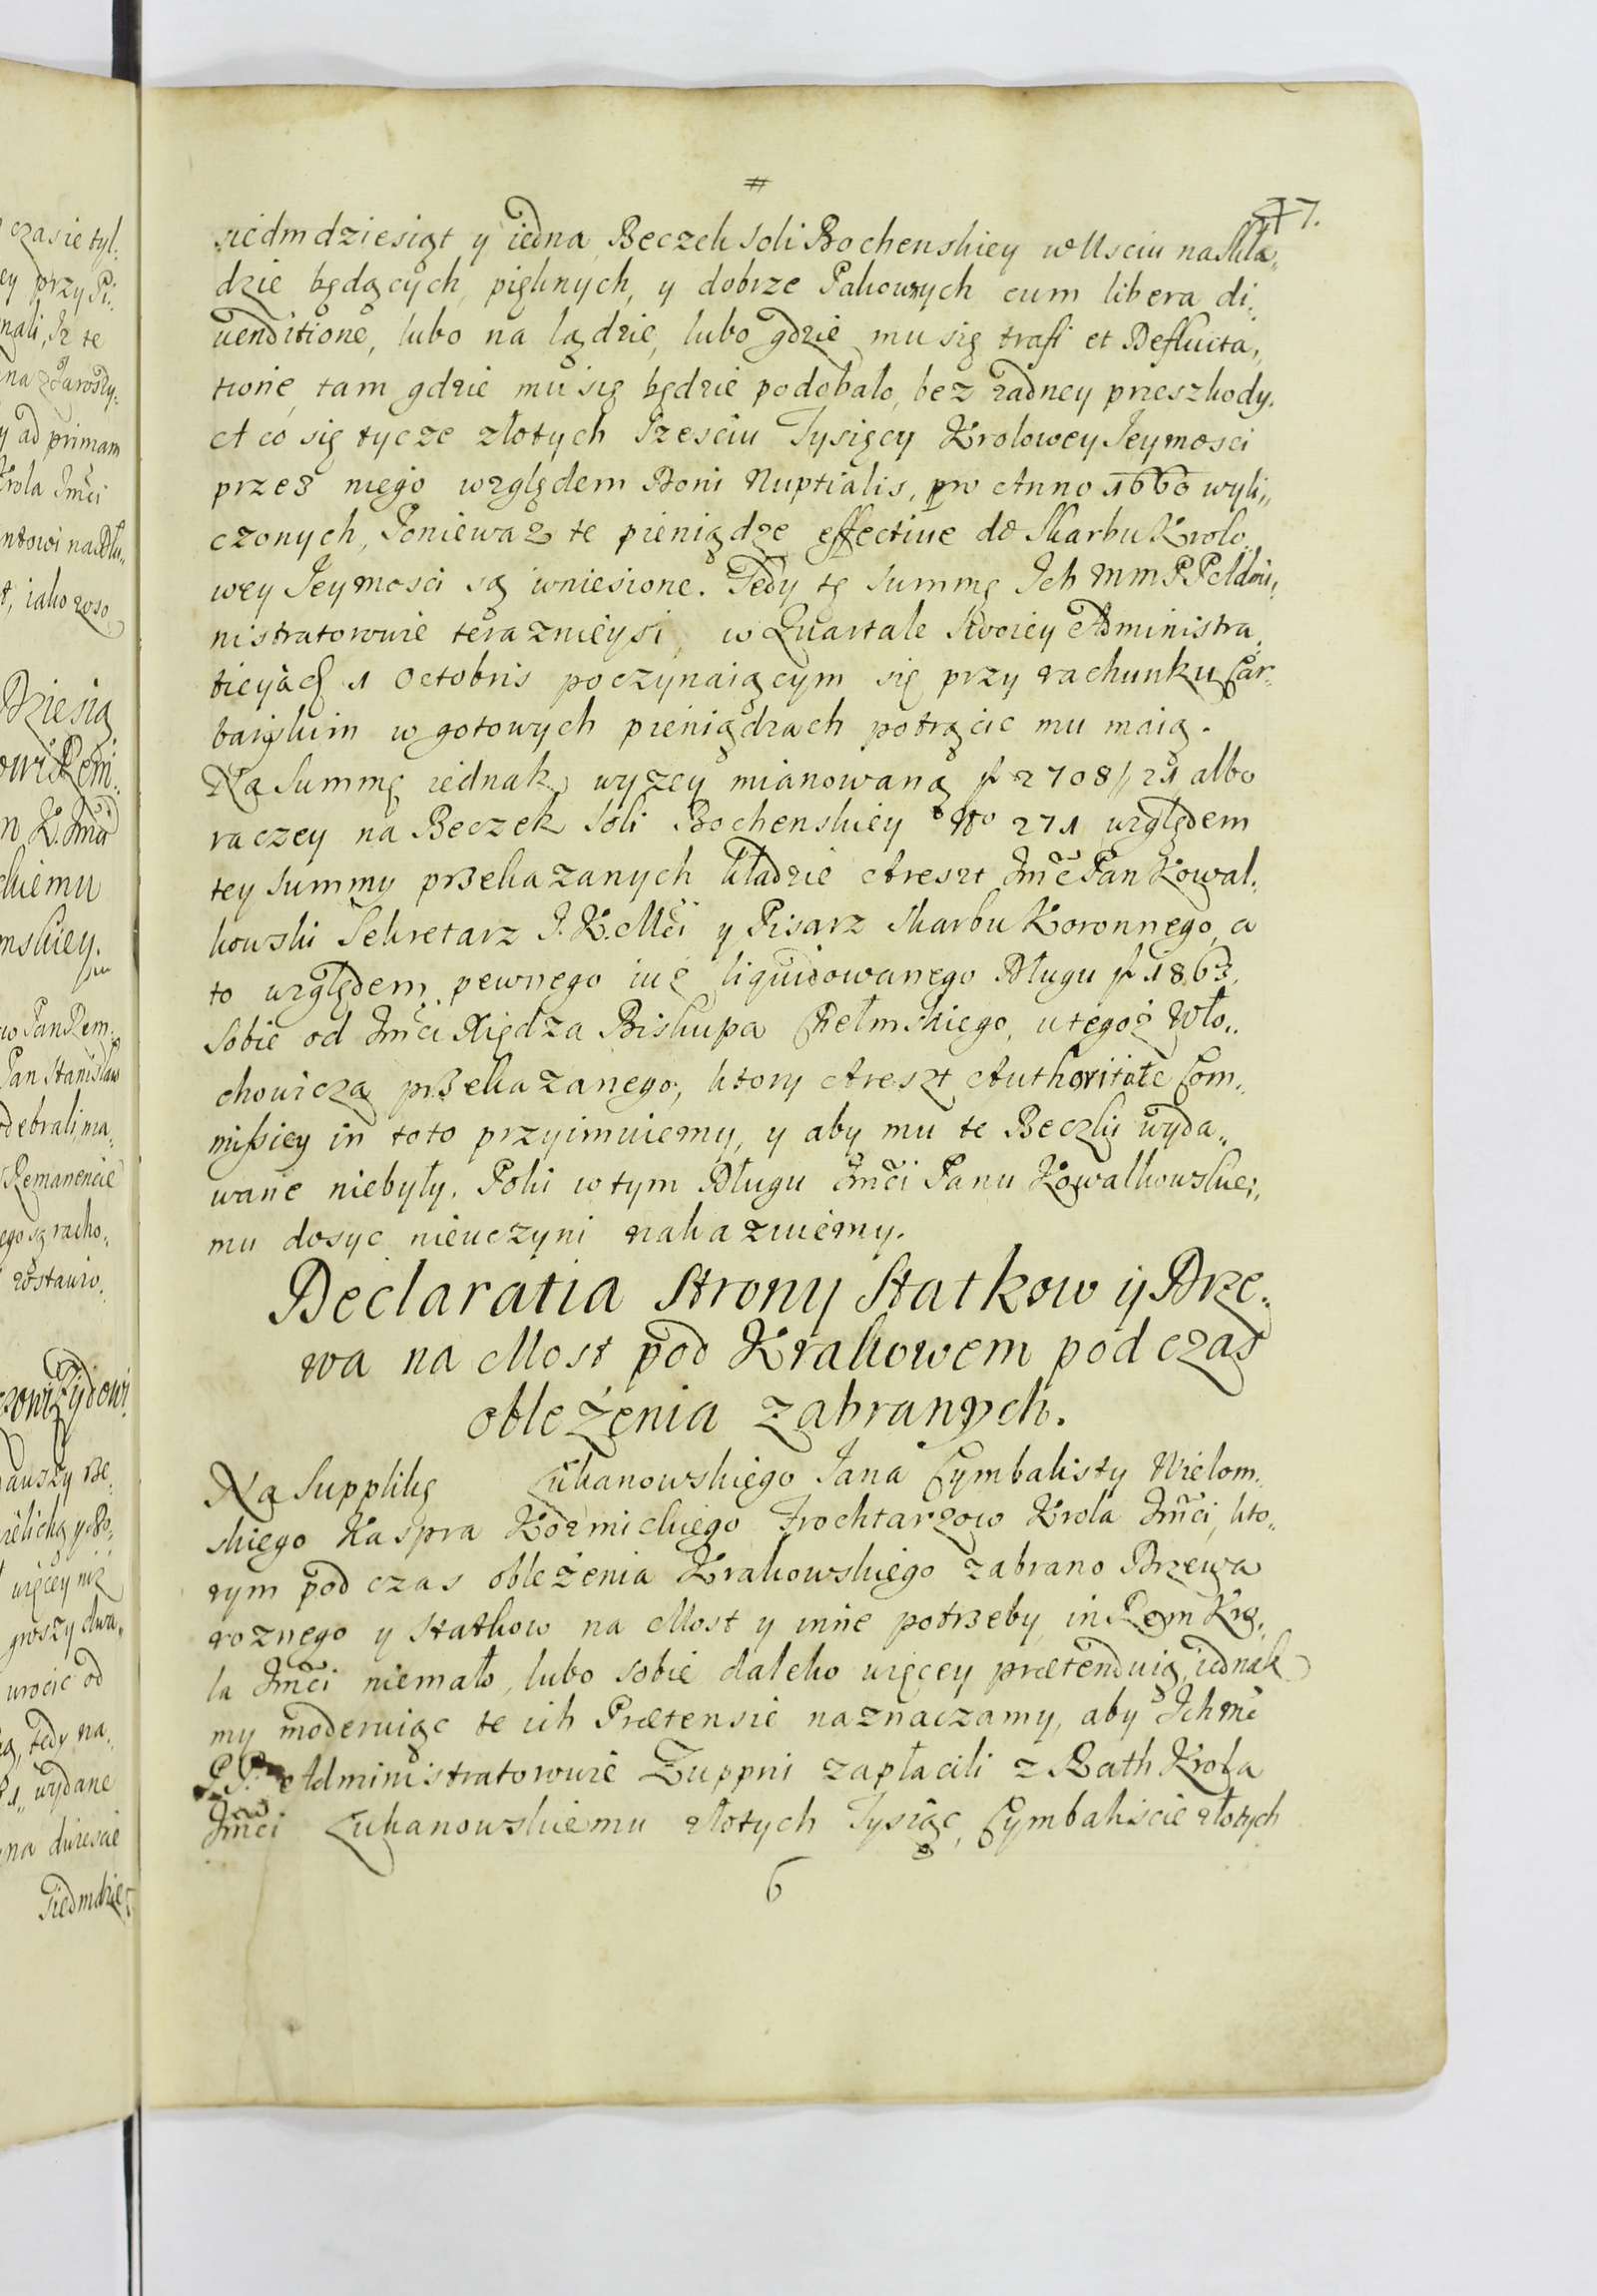 #
77.
siedmdziesiąt y iedna Beczek soli Bochenskiey w Usciu na skła„
dzie będących, pięknych, y dobrze Pakownych cum libera di„
uenditione, lubo na lądzie, lubo gdzie mu się trafi et Defluita„
tione, tam gdzie mu się będzie podobało, bez zadney przeszkody.
et co się tycze złotych Szesciu Tysięcy Krolowey Jeymosci
przez niego względem Doni Nuptialis, pro Anno 1660 wyli„
czonych, Poniewaz te pieniądze effectiue do Skarbu Krolo„
wey Jeymosci są wniesione. Tedy tę summę Ich mm PP Admi„
nistratorowie teraznieysi, w Quartale swoiey Administra„
tiey à 1 Octobris poczynaiącym się przy rachunku Car„
barskim w gotowych pieniądzach potrącic mu maią.
Na summę iednak wyzey mianowaną f 2708// 21 albo
raczey na Beczek soli Bochenskiey No 271 względem
tey summy przekazanych kładzie Areszt Jmć Pan Kowal„
kowski Sekretarz J. K. Mći y Pisarz Skarbu Koronnego, a
to względem pewnego iuż liquidowanego Długu f 1863.
sobie od Jmći Xiędza Biskupa Chełmskiego, u tegoż Wło„
chowicza przekazanego, ktory Areszt Authoritate Com„
missiey in toto przyimuiemy, y aby mu te Beczki wyda„
wane niebyły. Poki w tym Długu Jmći Panu Kowalkowskie„
mu dosyc nieuczyni nakazuiemy.
Declaratia strony statkow y Drze„
wa na Most pod Krakowem pod czas
obleżenia zabranych.
Na supplikę Łukanowskiego Jana Cymbalisty Wielom„
skiego Kaspra Kozmickiego Frochtarzow Krola Jmći, kto„
rym pod czas obleżenia Krakowskiego zabrano Drzewa
roznego y statkow na Most y inne potrzeby in Rem Kro„
la Jmći niemało, lubo sobie daleko więcey prætenduią, iednak
my moderuiąc te ich Prætensie naznaczamy, aby Ich mć
PP. Administratorowie Zuppni zapłacili z Rath Krola
Jmći Łukanowskiemu złotych Tysiąc, Cymbaliscie złotych
6